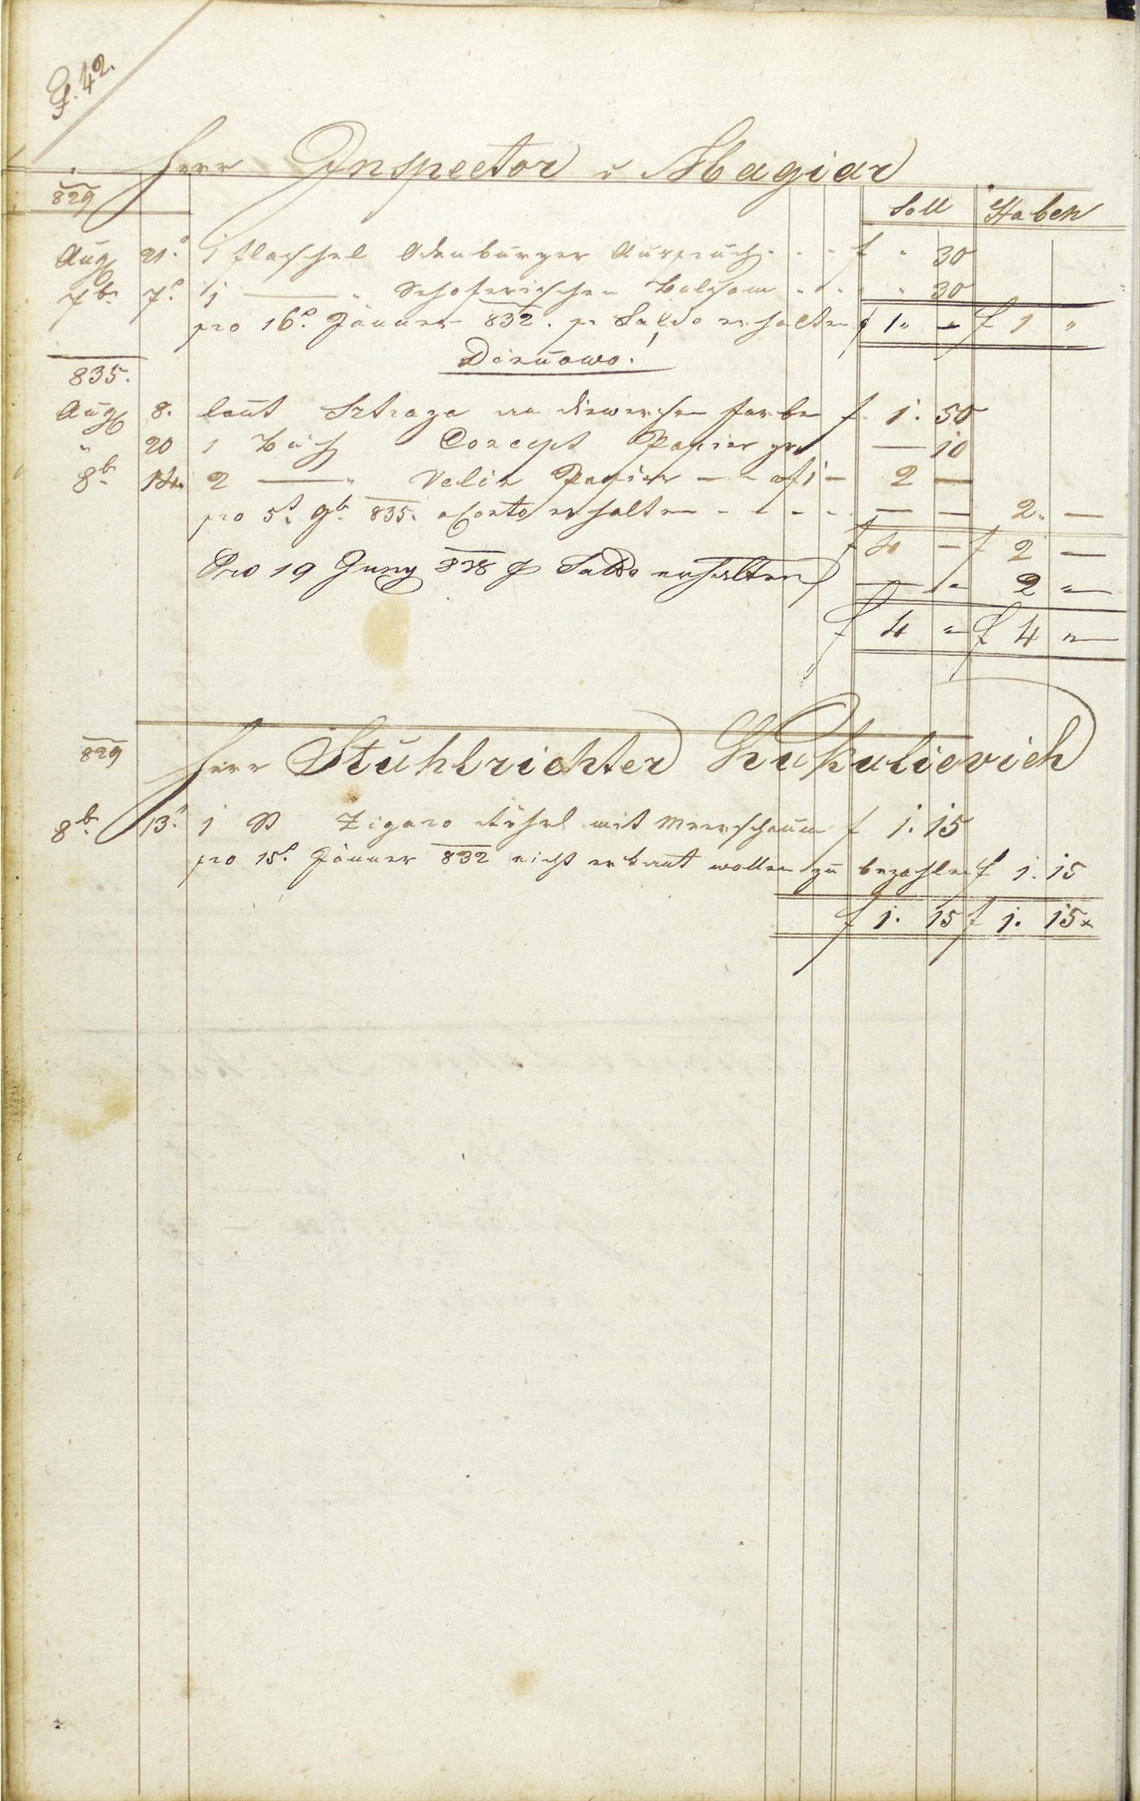 F. 42.
Herr Inspector v Magiar
829
Soll Haben
Aug 21. 1 Flaschel Ödenburger Ausbruch f " 30
7br 7. 1 — " Schoferischen Balsam " 30
pro 16. Jänner 832. pr Saldo erhalten f 1 " — f 1 "
835.
Aug 8. laut Strazza an diversen Farben f 1. 50
" 20 1 Buch Concept Papier — 10
8br 14. 2 — " Velin Papier — af 1 — 2 —
pro 5t 9br 835. aConto erhalten — — 2. —
f 4 — f 2 —
Pro 19 Juny 838 p Saldo erhalten — " 2 "
f 4 " f 4 "
829
Herr Stuhlrichter Kukulievich
8br 13. 1 Zigaro Röhrl mit Meerschaum f 1. 15
pro 15. Jänner 832 nicht erkant wollen zu bezahlen f 1. 15
f 1. 15 f 1. 15x